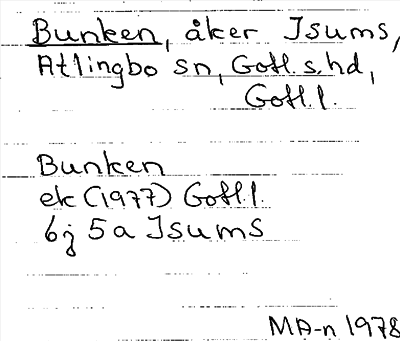 Bunken, åker Isums,
Atlingbo sn, Gotl. s. hd,
Gotl. l.
Bunken
ek (1977) Gotl. l.
6j 5a Isums
MA-n 1978